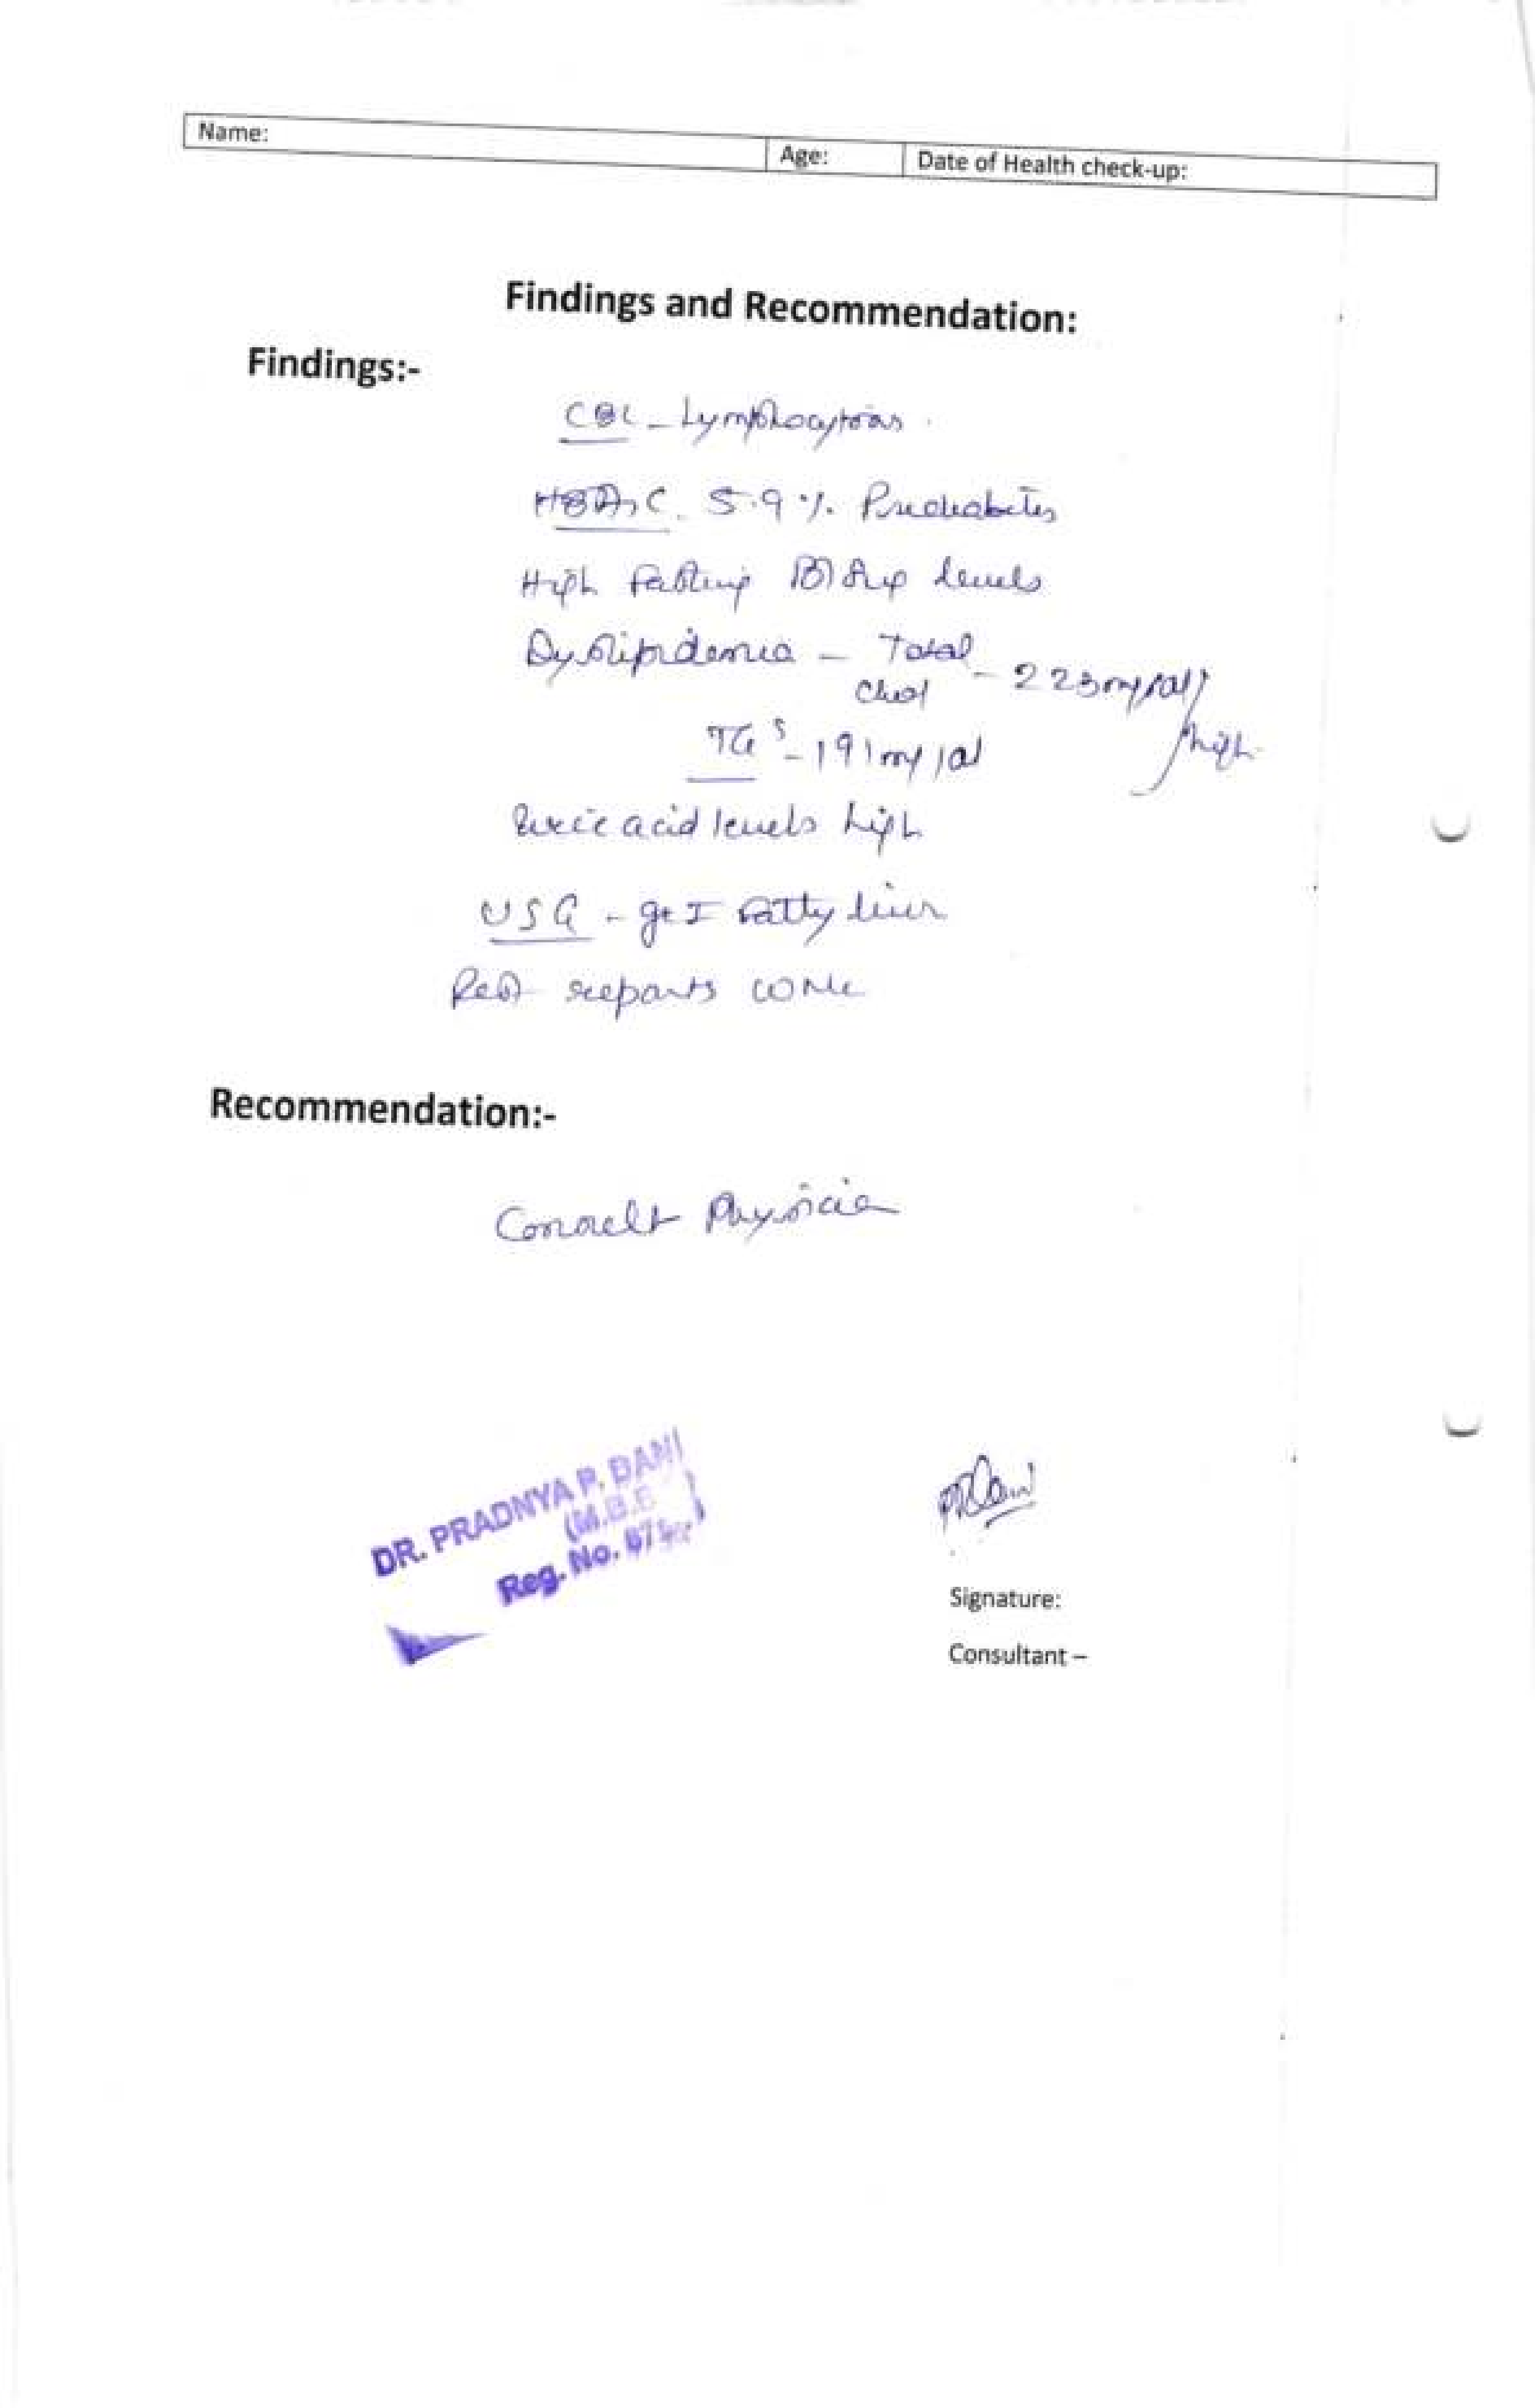 Name: Age: Date of Health check-up:
Findings and Recommendation:
Findings:-
CBC - Lymphocytosis.
HBA1C. 5.9 %. Prediabetes
High fasting Bl Sug levels
Dyslipidemia - Total Chol - 223mg/dl
TG s - 191mg/dl
high
uric acid levels high
USG - gr I fatty liver
Rest reports WNL
Recommendation:-
Consult Physician
DR. PRADNYA P. DANI
(M.B.B
Reg. No.
Signature:
Consultant –